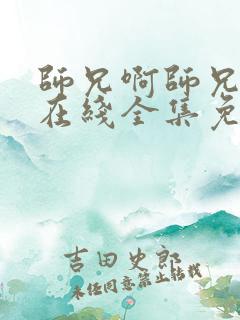 師兄啊師兄
在綫全集免
吉田史郎
未經同意禁止轉載